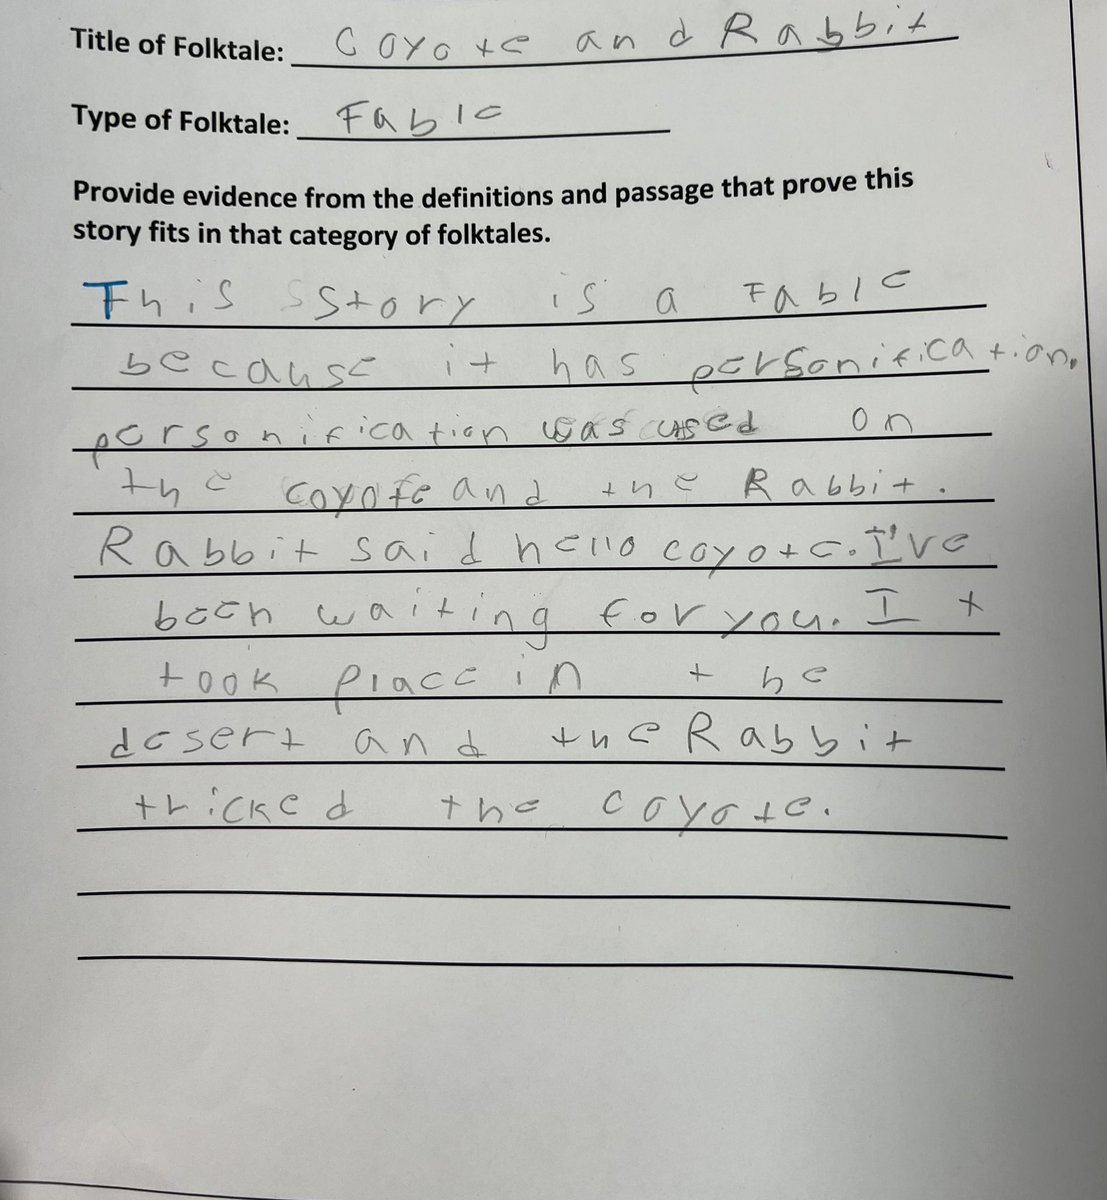 Title of Folktale: Coyote and Rabbit
Type of Folktale: Fable
Provide evidence from the definitions and passage that prove this
story fits in that category of folktales.
This sstory is a Fable
because it has personification.
personification was used on
the coyote and the Rabbit.
Rabbit said hello coyote. I've
been waiting for you. It
took place in the
desert and the Rabbit
tricked the coyote.